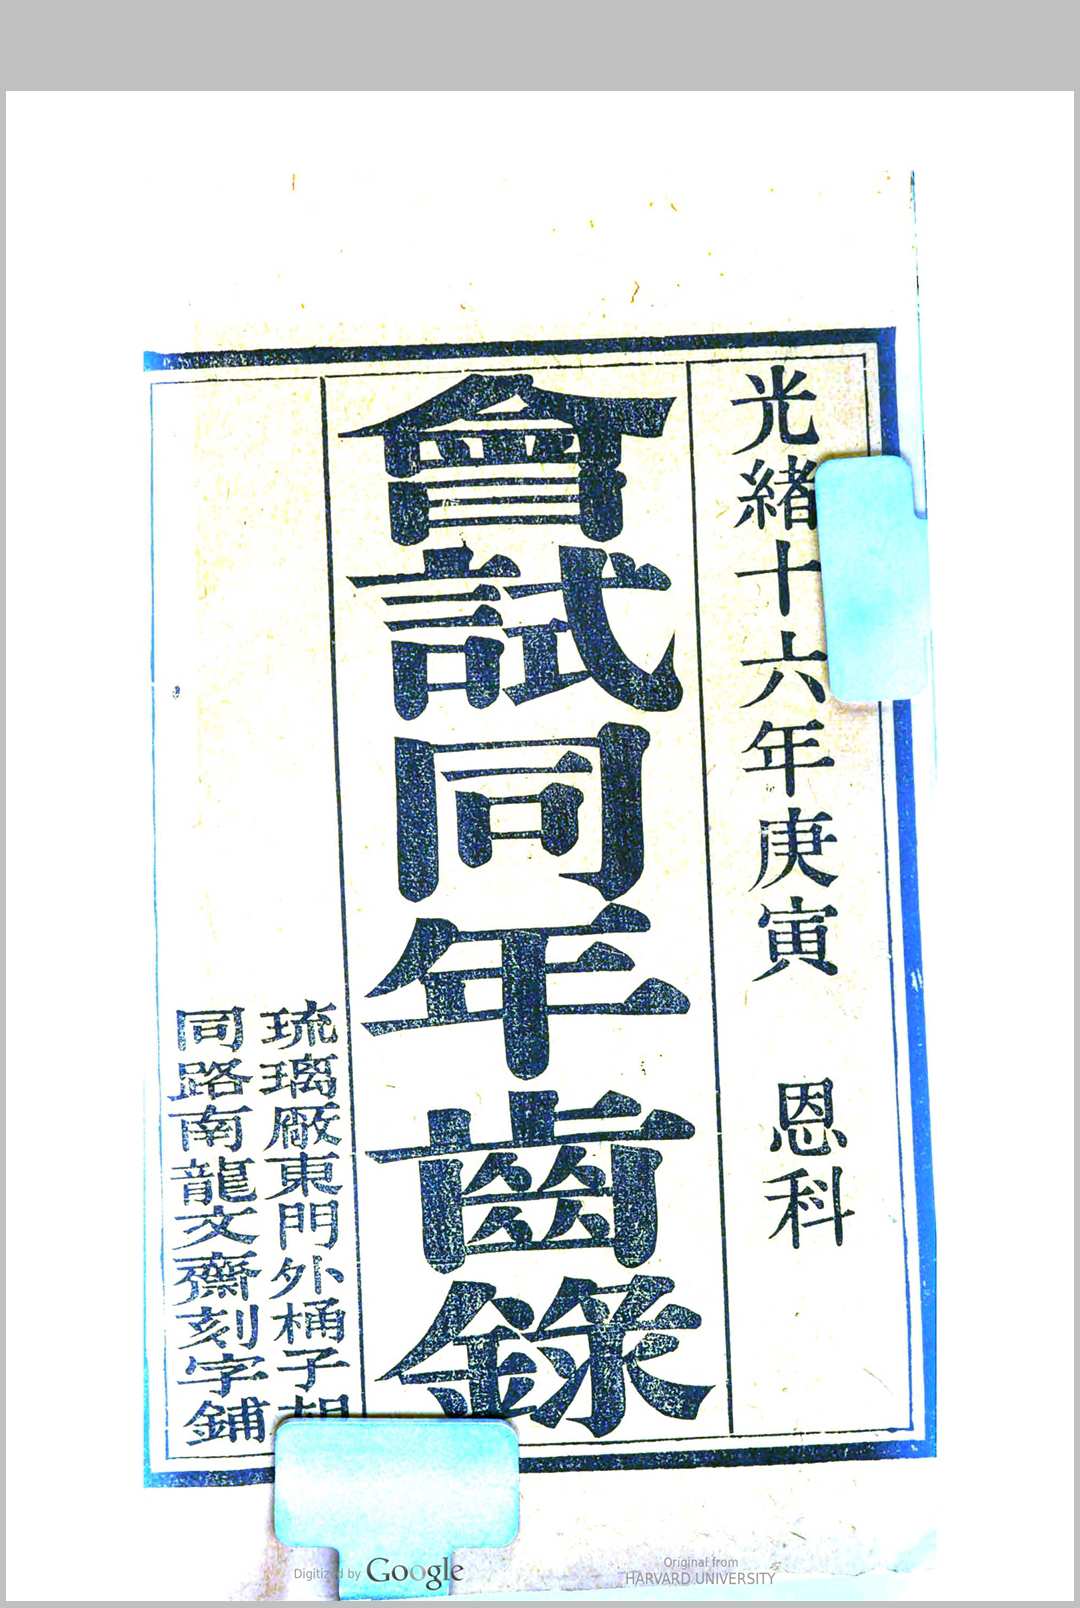 光緒十六年庚寅 恩科
會試同年齒錄
琉璃廠東門外桶子胡
同路南龍文齋刻字鋪
Digitized by Google
Original from
HARVARD UNIVERSITY